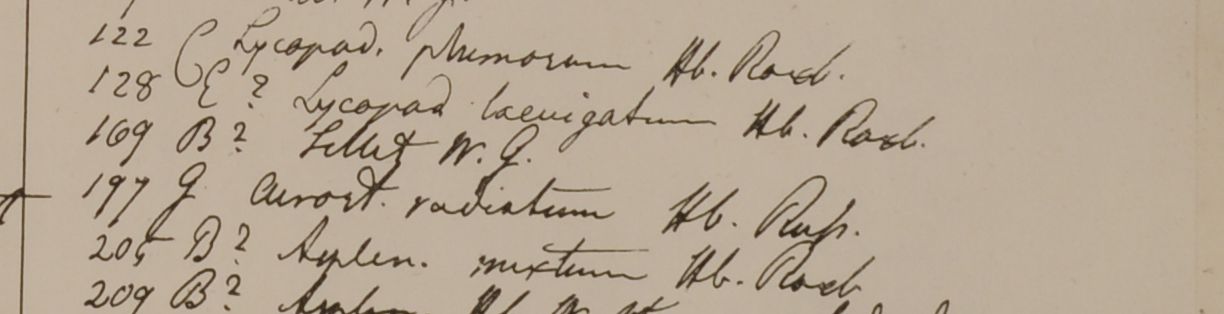 122 ( Lycopod. plumosum Hb. Roxb.
128 E ? Lycopod laevigatum Hb. Roxb.
169 B ? W. G.
197 G Acrost. radiatum Hb. Russ.
205 B ? Asplen. mixtum Hb. Roxb
209 B ? Asplen Hb.